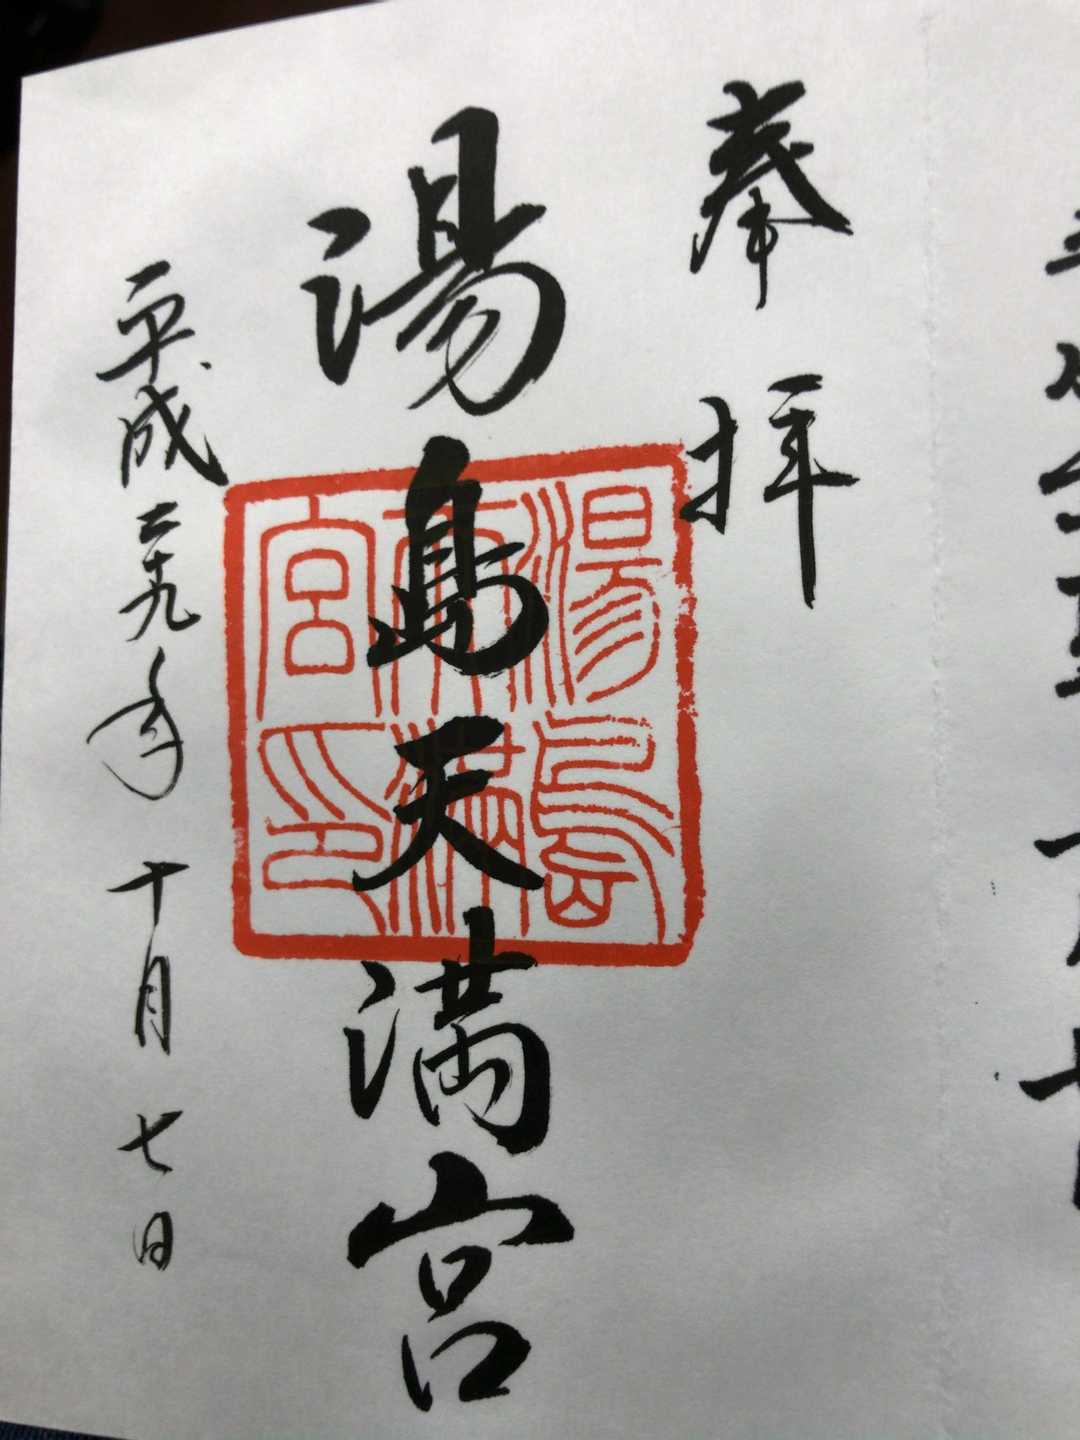 奉拝
湯島天満宮
湯島
天満
宮印
平成二十九年十月七日